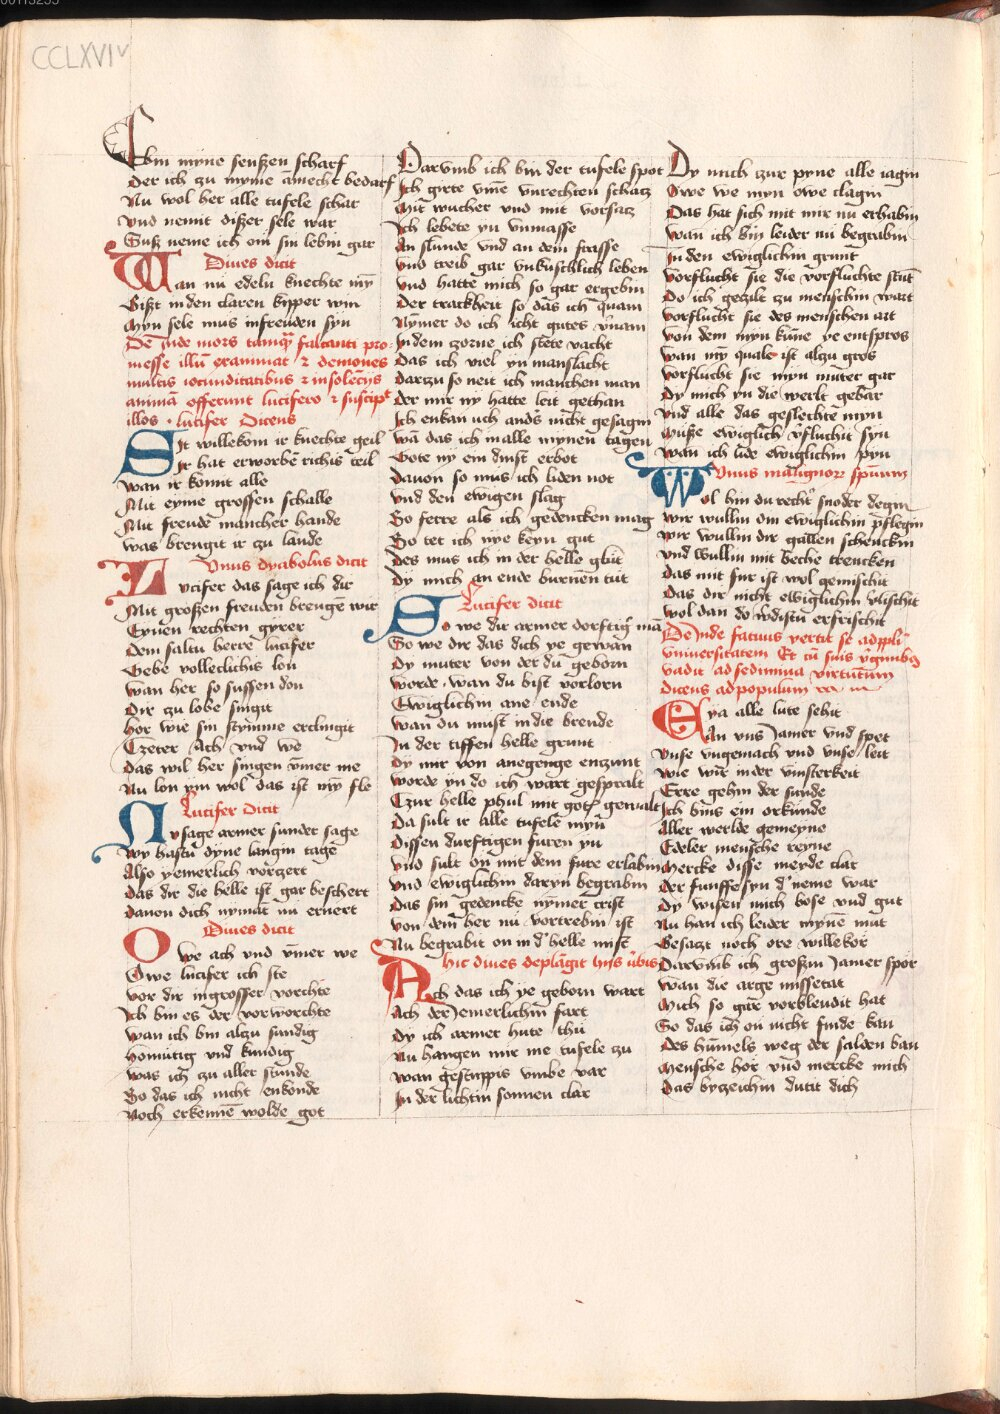 CCLXVIv
Ebin myne senfzen scharf
Der ich zu myme āmecht bedarf
Nu wol her alle tufele schar
Vnd nemit diszer sele war
Susz neme ich em sin lebin gar
Diues dicit
Wan nu edeln knechte mȳ
Gißt in den claren kypper win
Myn sele mus in freuden syn
multis iocunditatibus et insolēcijs
animā offerunt lucifero et suscipit
illos · lucifer Dicens
Sit willekom ir knechte geil
Ir hat erworbē richis teil
Wan ir komit alle
Mit eyme grossen schalle
Mit freude mancher hande
Was brengit ir zu lande
Vnus dyabolus dicit
Lucifer das sage ich dir
Mit großen freuden brengē wir
Eynen rechten gyrer
Dem saltu herre lucifer
Gebe volleclichis lon
Wan her so sussen don
Dir zu lobe singit
Hor wie sin stȳmme erclingit
Czeter Ach vnd we
Das wil her singen ȳmer me
Nu lon ym wol das ist mȳ fle
Lucifer dicit
Nv sage armer sunder sage
Wy hastu dyne langin tage
Also yemerlich vorzert
Das dir die helle ist gar beschert
Danon dich nymāt nū ernert
Diues dicit
O we ach vnd ȳmer we
Owe lucifer ich ste
Vor dir in grosser vorchte
Ich bin es der vorworchte
Wan ich bin alzu sundig
Homutig vnd kundig
Was ich zu aller stunde
So das ich nicht enkonde
Noch erkennē wolde got
Darvmb ich bin der tufele spot
Ich girte vmē vnrechten schatz
Mit wucher vnd mit vorsatz
Ich lebete yn vnmasse
An slunde vnd an dem frasse
Vnd treib gar vnkuschlich leben
Vnd hatte mich so gar ergebin
Der trackheit so das ich quam
Nȳmer do ich icht gutes vornam
In dem zorne ich stete vacht
Das ich viel yn manslacht
Darczu so neit ich manchen man
Der mir ny hatte leit gethan
Ich enkan uch anders nicht gesagin
Wā das ich in alle mynen tagen
Gote ny ein dinst erbot
Dauon so mus ich liden not
Vnd den ewigen slag
So ferre als ich gedencken mag
So tet ich nye keyn gut
Des mus ich in der helle glūt
Dy mich an ende burnen tut
Lucifer dicit
So we dir armer dorftiger mā
So we dir das dich ye gewan
Dy muter von der du geborn
Worde · wan du bist vorlorn
Ewiglichin ane ende
Wan du must in die brende
In der tiffen helle grunt
Dy mir von anegenge enzunt
Worde yn do ich wart gespralt
Czur helle phul mit gotis gewalt
Da sult ir alle tufele myn
Dissen durftigen furen yn
Vnd sult on mit dem fure erlabin
Vnd ewiglichin daryn begrabin
Das sin gedencke nȳmer crist
Von dem her nu vortrebin ist
Nu begrabit on in der helle mist
hic diues deplāgit hijs verbis
Ach das ich ye geborn wart
Ach der Jemerlichin fart
Dy ich armer hute thu
Nu hangen mir me tufele zu
Wan gestuppis vmbe var
In der lichtin sonnen clar
Dy mich zur pyne alle iagin
Owe we myn owe clagin
Das hat sich mit mir nu erhabin
Wan ich bin leider nu begrabin
In den ewiglichin grunt
Vorflucht sie die vorfluchte stūt
Do ich gezilt zu menschin wart
Vorflucht sie des menschen art
Von dem myn kūne ye entspros
Wan mȳ quale ist alzu gros
Vorflucht sie myn muter gar
Dy mich yn die werlt gebar
Vnd alle das geslechte myn
Muße ewiglich vfluchit syn
Wan ich lide ewiglichin pyn
Vnus malignorum spirituum
Wol hin du rechter snoder degin
Wir wullin din ewiglichin pflegin
Wir wullin dir gallen schenckin
Vnd wullin mit beche trencken
Das mit fur ist wol gemischit
Das dir nicht ewiglichin vlischit
Wol dan do wirdistu erfrischit
vniuersitatem Et cū suis virginibus
vadit ad sedimina virtutum
dicens ad populum
Eya alle lute sehit
An vns Jamer vnd spet
Vnse vngemach vnd vnse leit
Wie wir in der vinsterkeit
Erre gehin der sunde
Ich bins ein orkunde
Aller werlde gemeyne
Edeler mensche reyne
Mercke disse meyde clar
Der funffe syn der neme war
Dy wisen mich bose vnd gut
Nu han ich leider mynē mut
Gesatzt noch ore willekor
Darvmb ich großin Jamer spor
Wan die arge missetat
Mich so gar vorblendit hat
So das ich on nicht finde kan
Des hūmels weg der salden ban
Mensche hor vnd mercke mich
Das byzeichin dutit dich